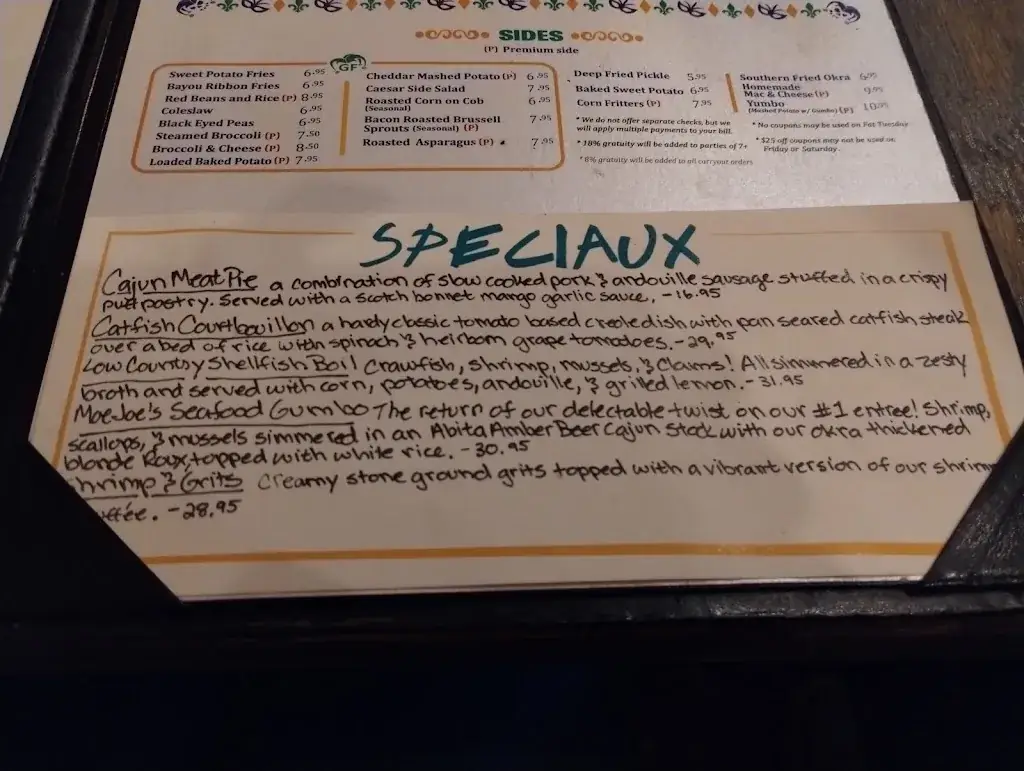 SIDES
(P) Premium side
GF
Sweet Potato Fries 6.95
Bayou Ribbon Fries 6.95
Red Beans and Rice (P) 8.95
Coleslaw 6.95
Black Eyed Peas 6.95
Steamed Broccoli (P) 7.50
Broccoli & Cheese (P) 8.50
Loaded Baked Potato (P) 7.95
Cheddar Mashed Potato (P) 6.95
Caesar Side Salad 7.95
Roasted Corn on Cob 6.95
(Seasonal)
Bacon Roasted Brussell 7.95
Sprouts (Seasonal) (P)
Roasted Asparagus (P) 7.95
Deep Fried Pickle 5.95
Baked Sweet Potato 6.95
Corn Fritters (P) 7.95
* We do not offer separate checks, but we
will apply multiple payments to your bill.
* 18% gratuity will be added to parties of 7+
* 8% gratuity will be added to all carryout orders
Southern Fried Okra 6.95
Homemade
Mac & Cheese (P) 9.95
Yumbo 10.95
(Mashed Potato w/ Gumbo) (P)
* No coupons may be used on Fat Tuesday
* $25 off coupons may not be used on
Friday or Saturday.
SPECIAUX
Cajun Meat Pie a combination of slow cooked pork & andouille sausage stuffed in a crispy
puff pastry. Served with a scotch bonnet mango garlic sauce. - 16.95
Catfish Courtbouillon a hardy classic tomato based creole dish with pan seared catfish steak
over a bed of rice with spinach & heirlom grape tomatoes. - 29.95
Low Country Shellfish Boil Crawfish, shrimp, mussets, & Clams! All simmered in a zesty
broth and served with corn, potatoes, andouille, & grilled lemon. - 31.95
MoeJoe's Seafood Gumbo The return of our delectable twist on our #1 entree! Shrimp,
scallops, & mussels simmered in an Abita Amber Beer Cajun Stock with our okra thickened
blonde Roux, topped with white rice. - 30.95
Shrimp & Grits Creamy stone ground grits topped with a vibrant version of our shrimp
uffée. - 28.95